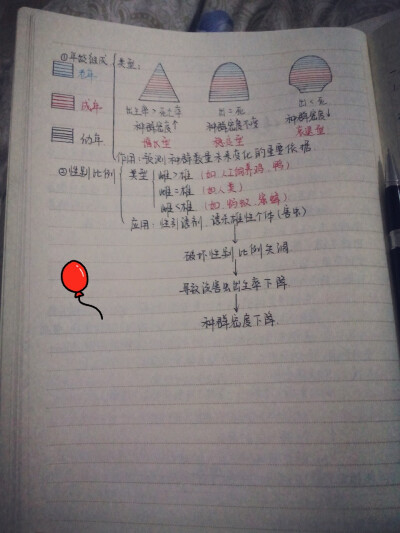 ①年龄组成
类型:
老年
成年
幼年
出生率>死亡率
出=死
出<死
种群密度↑
种群密度不变
种群密度↓
增长型
稳定型
衰退型
作用:预测种群数量未来变化的重要依据
②性别比例
类型
雌>雄 (如人工饲养鸡、鸭)
雌=雄 (如人类)
雌<雄 (如蚂蚁、蜜蜂)
应用:性引诱剂,诱杀雄性个体(害虫)
破坏性别比例失调
导致该害虫出生率下降
种群密度下降